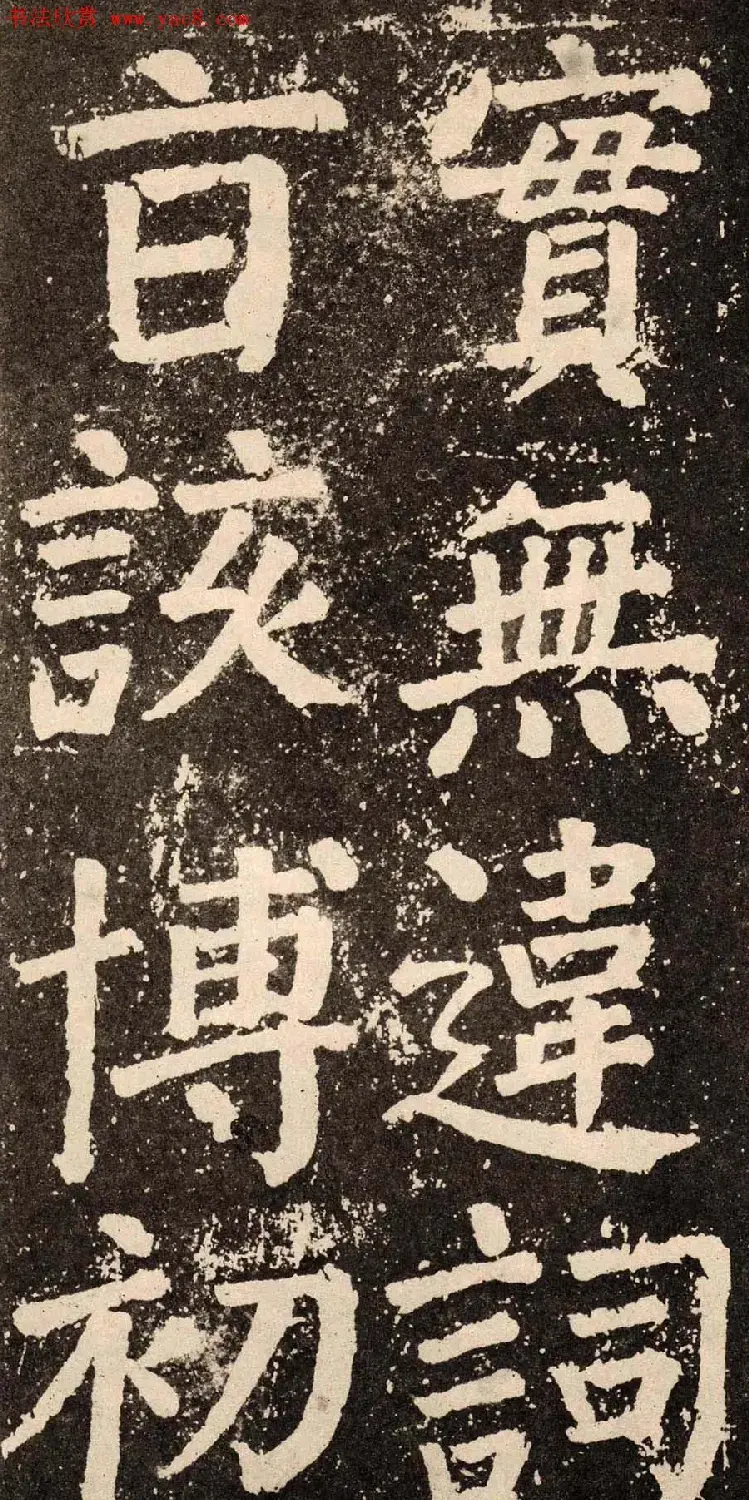 书法欣赏 www.yac8.com
實無違詞
旨該博初